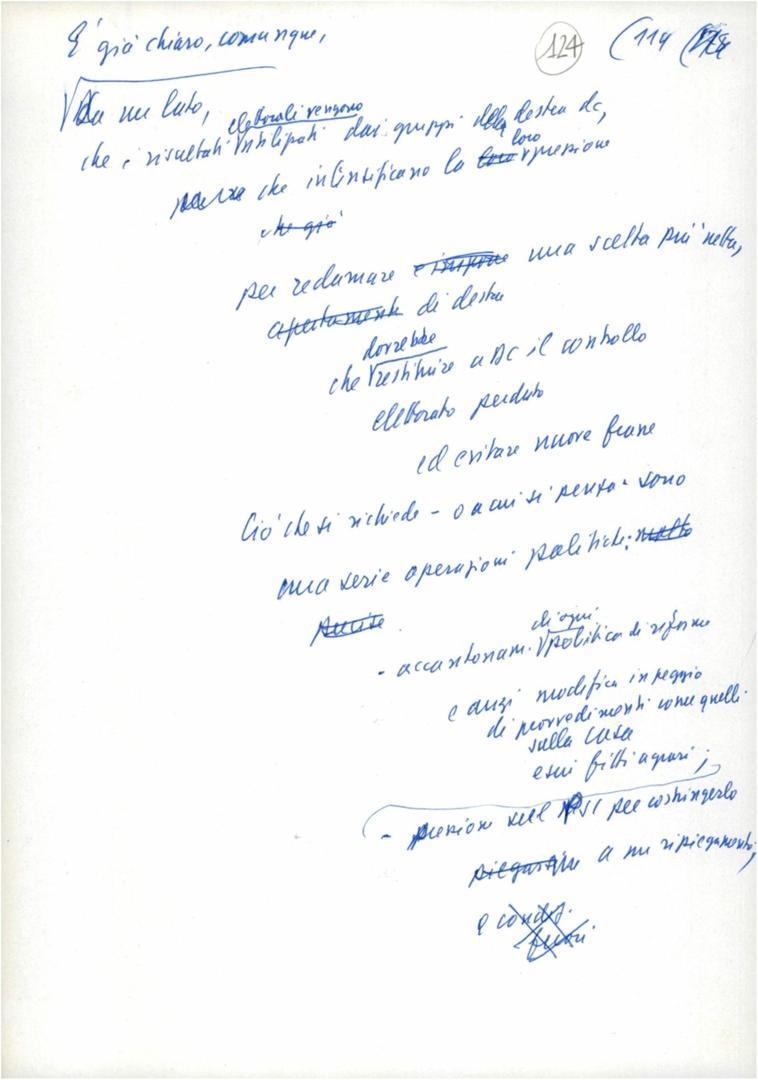 E' già chiaro, comunque,
124
(114
Da un lato,
elettorali vengono
che i risultati utilizzati dai gruppi della destra dc,
loro
che intensificano la loro pressione
che già
per reclamare e imporre una scelta più netta,
apertamente di destra
dovrebbe
che restituire a DC il controllo
elettorato perduto
ed evitare nuove frane
Ciò che si richiede - o a cui si pensa - sono
una serie operazioni politiche: molto
precise
di ogni
- accantonam. politica di riforme
e anzi modifica in peggio
di provvedimenti come quelli
sulla casa
e sui fitti agrari;
- pressione sul PSI per costringerlo
a un ripiegamento;
e condiz.
fuori